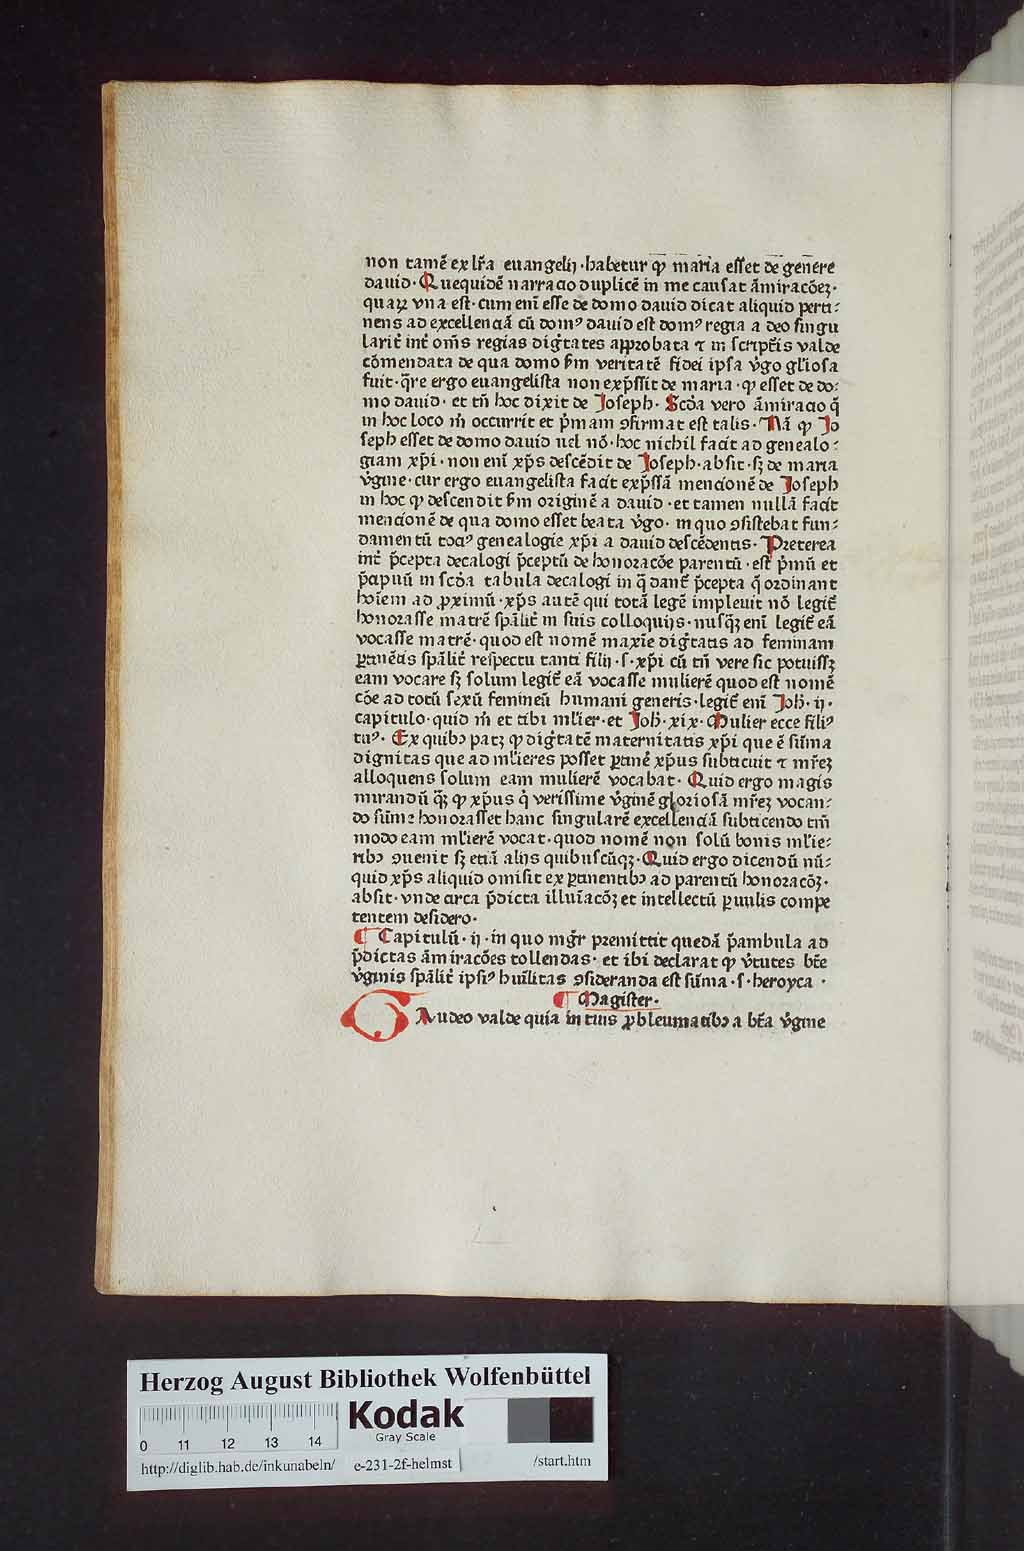 non tamē ex lr̄a euangelij · habetur ꝙ maria esset de genere
dauid · Quequidē narracio duplicē in me causat āmiracōeʒ ·
quaꝝ vna est · cum enī esse de domo dauid dicat aliquid perti-
nens ad excellenciā cū domꝰ dauid est domꝰ regia a deo singu
larit̄ int̄ om̄s regias dig̃tates approbata ⁊ in script̄is valde
cōmendata de qua domo ẜm veritatē fidei ipsa v̓go gl̓iosa
fuit · q̄re ergo euangelista non exp̄ssit de maria · ꝙ esset de do-
mo dauid · et tn̄ hoc dixit de Joseph · Scd̓a vero āmiracio q̄
in hoc loco m̓ occurrit et p̓mam ꝯfirmat est talis · Nā ꝙ Jo
seph esset de domo dauid uel nō · hoc nichil facit ad genealo-
giam xp̄i · non enī xp̄s descēdit de Joseph · absit · sʒ de maria
v̓gine · cur ergo euangelista facit exp̄ssā mencionē de Joseph
in hoc ꝙ descendit ẜm originē a dauid · et tamen nullā facit
mencionē de qua domo esset beata v̓go · in quo ꝯsistebat fun-
damentū tociꝰ genealogie xp̄i a dauid descēdentis · Preterea
int̄ p̄cepta decalogi p̄ceptū de honoracōe parentū · est p̓mū et
p̄cipuū in scd̓a tabula decalogi in q̄ dant̄ p̄cepta q̄ ordinant
hoīem ad ꝓximū · xp̄s autē qui totā legē impleuit nō legit̄
honorasse matrē sp̄alit̄ in suis colloquijs · nusq̄ʒ enī legit̄ eā
vocasse matrē · quod est nomē maxīe dig̃tatis ad feminam
ꝑtinētis sp̄alit̄ respectu tanti filij · s · xp̄i cū tn̄ vere sic potuissʒ
eam vocare sʒ solum legit̄ eā vocasse mulierē quod est nomē
cōe ad totū sexū femineū humani generis · legit̄ enī Joh̓ · ij ·
capitulo · quid m̓ et tibi ml̓ier · et Joh̓ · xix · Mulier ecce filiꝰ
tuꝰ · Ex quibꝫ patʒ ꝙ dig̃tatē maternitatis xp̄i que ē sūma
dignitas que ad ml̓ieres posset ꝑtinē xp̄us subticuit ⁊ mr̄eʒ
alloquens solum eam mulierē vocabat · Quid ergo magis
mirandū q̄ʒ ꝙ xp̄us q̓ verissime v̓ginē gloriosā mr̄eʒ vocan-
do sūme honorasset hanc singularē excellenciā subticendo tm̄
modo eam ml̓ierē vocat · quod nomē non solū bonis ml̓ie-
ribꝫ ꝯuenit sʒ etiā alijs quibuscūqʒ · Quid ergo dicendū nū-
quid xp̄s aliquid omisit ex ꝑtinentibꝫ ad parentū honoracōʒ ·
absit · vnde circa p̄dicta illuīacōʒ et intellectū ꝑuulis compe
tentem desidero ·
¶ Capitulū · ij · in quo mḡr premittit quedā p̄ambula ad
p̄dictas āmiracōes tollendas · et ibi declarat ꝙ v̓tutes bt̄e
v̓ginis sp̄alit̄ ipsiꝰ huīlitas ꝯsideranda est sūma · s · heroyca ·
¶ Magister ·
GAudeo valde quia in tuis ꝓbleumatibꝫ a bt̄a v̓gine
Herzog August Bibliothek Wolfenbüttel
Kodak
Gray Scale
0 11 12 13 14
http://diglib.hab.de/inkunabeln/ e-231-2f-helmst /start.htm